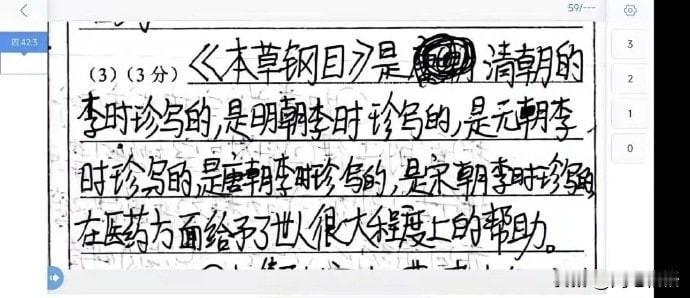 59/---
四.42:3
(3)(3分)《本草钢目》是 清朝的
李时珍写的,是明朝李时珍写的,是元朝李
时珍写的,是唐朝李时珍写的,是宋朝李时珍写的
在医药方面给予了世人很大程度上的帮助。
3
2
1
0